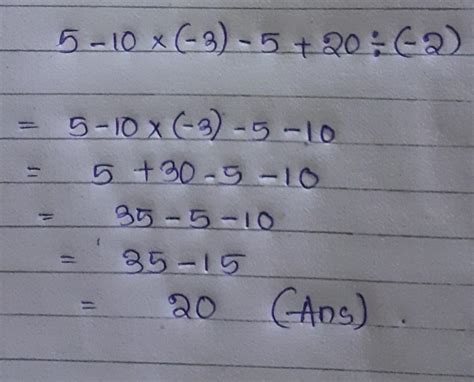 5 - 10 × (-3) - 5 + 20 ÷ (-2)
= 5 - 10 × (-3) - 5 - 10
= 5 + 30 - 5 - 10
= 35 - 5 - 10
= 35 - 15
= 20 (Ans) .